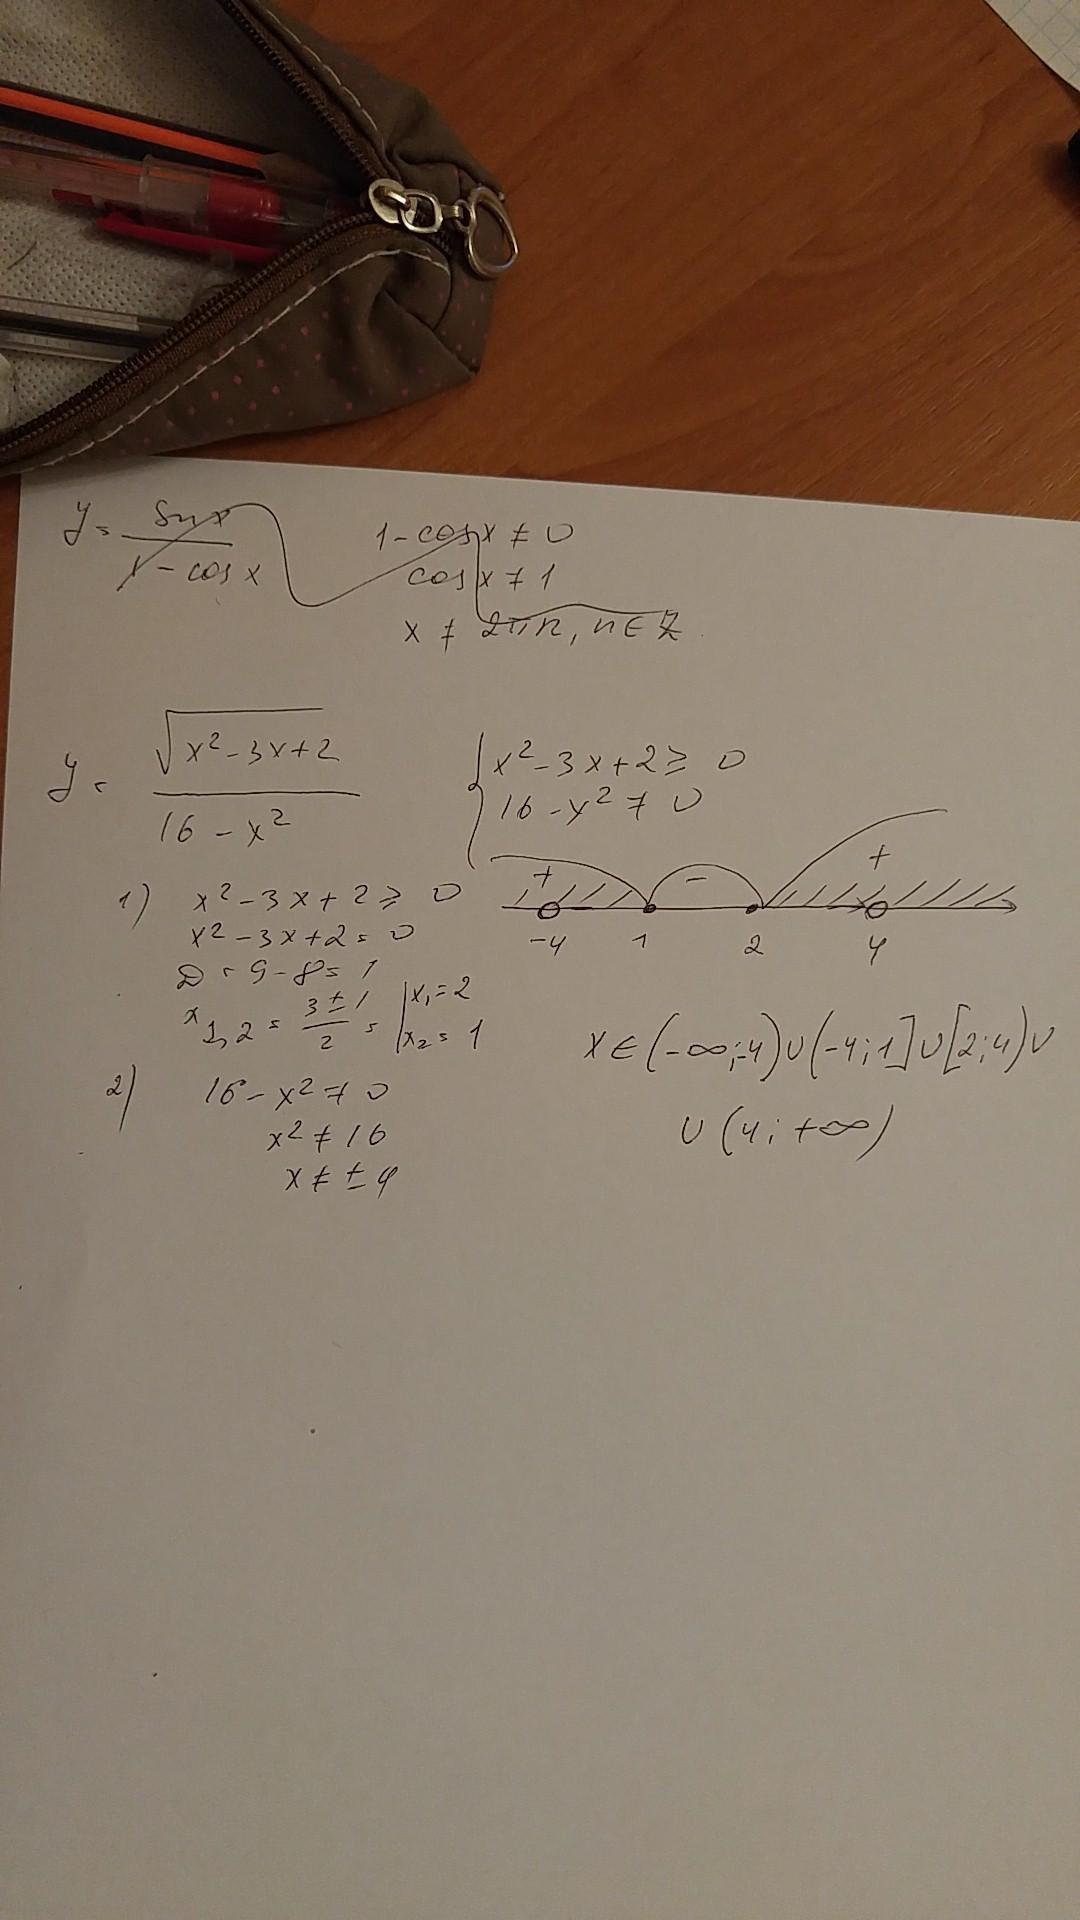 y = sin x / 1 - cos x
1 - cos x ≠ 0
cos x ≠ 1
x ≠ 2πn, n ∈ Z
y = √(x² - 3x + 2) / 16 - x²
{ x² - 3x + 2 ≥ 0
16 - x² ≠ 0
1) x² - 3x + 2 ≥ 0
x² - 3x + 2 = 0
D = 9 - 8 = 1
x 1,2 = 3 ± 1 / 2 = | x₁ = 2
x₂ = 1
2) 16 - x² ≠ 0
x² ≠ 16
x ≠ ± 4
+ - +
-4 1 2 4
x ∈ (-∞; -4) ∪ (-4; 1] ∪ [2; 4) ∪
∪ (4; +∞)